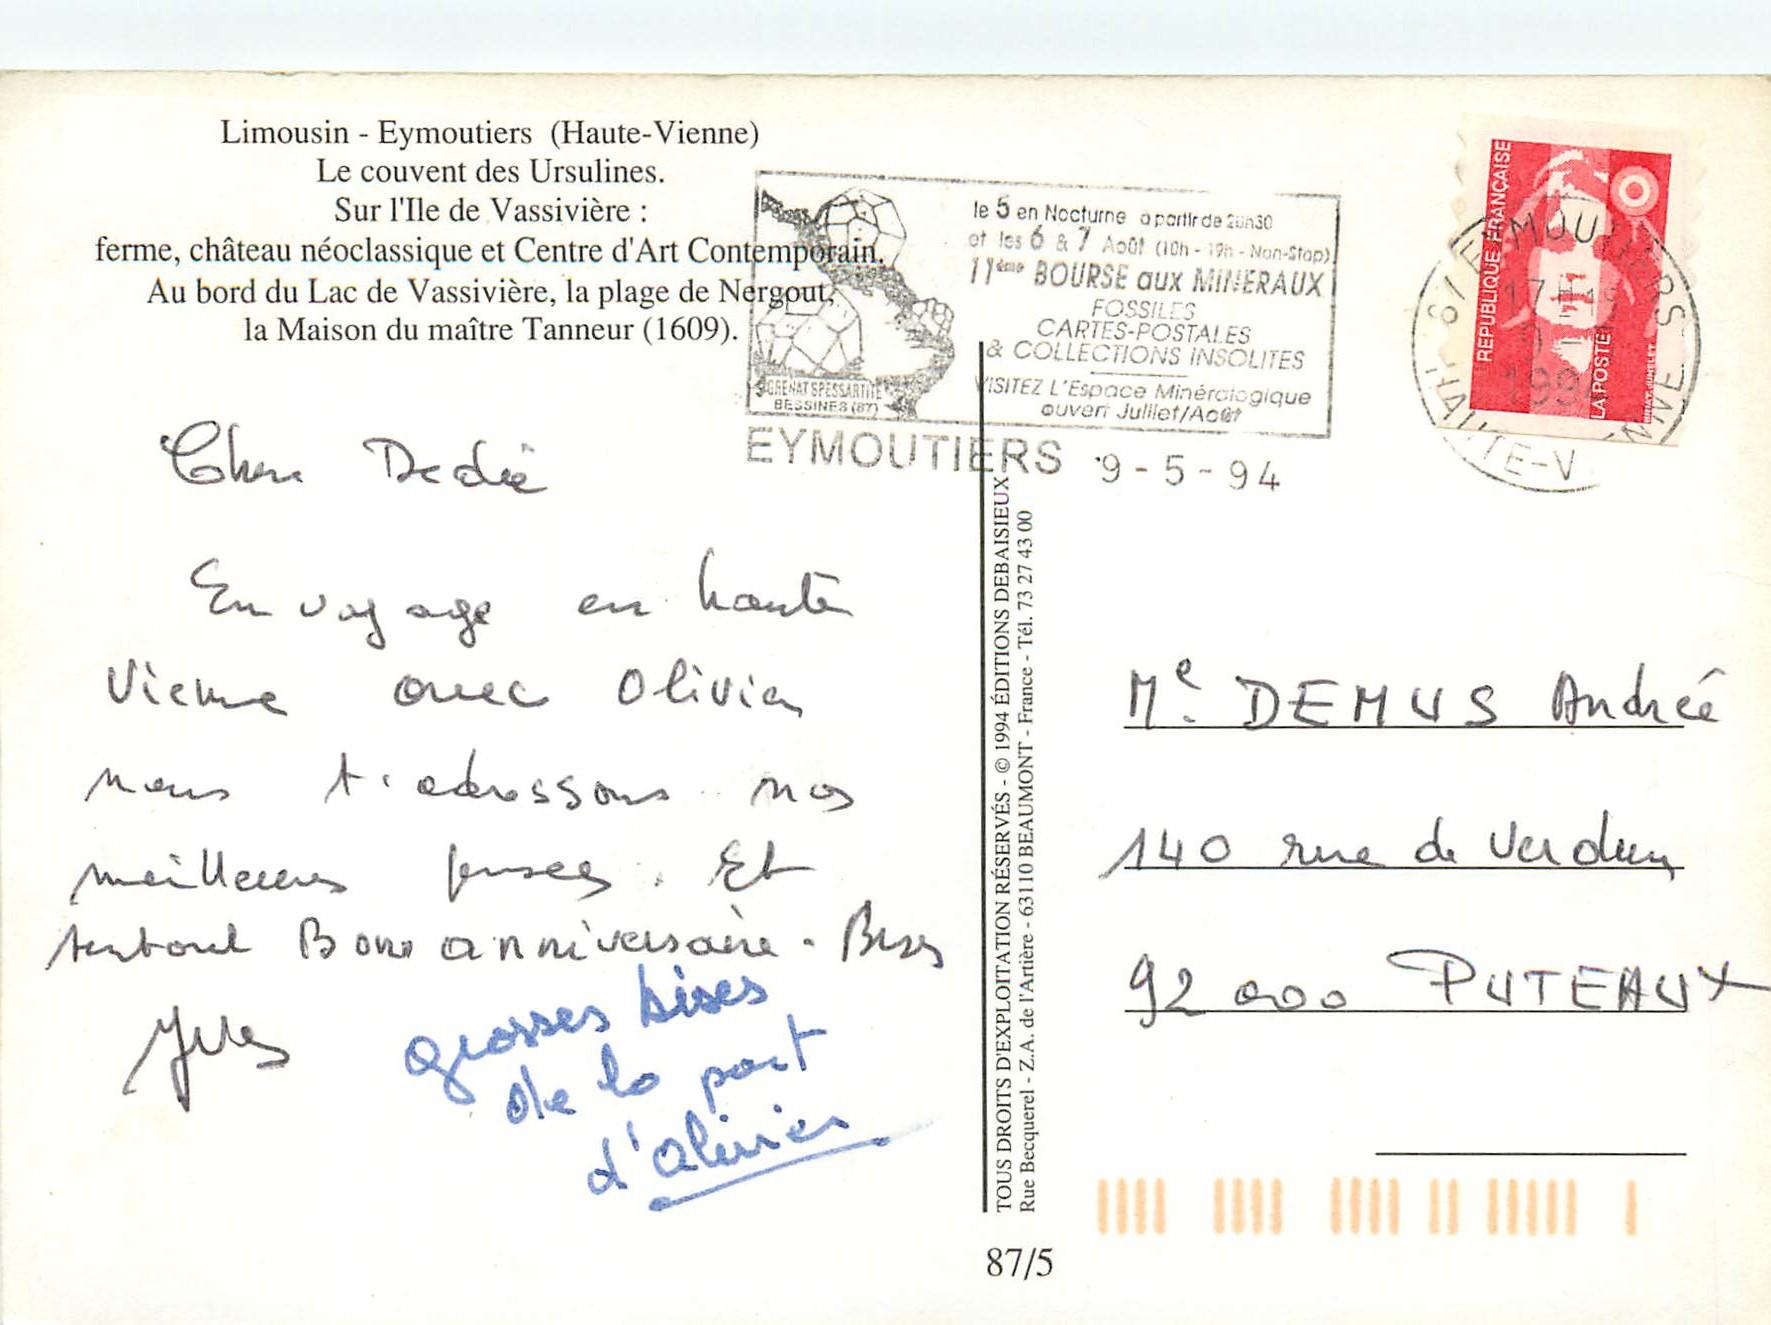 Limousin - Eymoutiers (Haute-Vienne)
Le couvent des Ursulines.
Sur l'Ile de Vassivière :
ferme, château néoclassique et Centre d'Art Contemporain.
Au bord du Lac de Vassivière, la plage de Nergout,
la Maison du maître Tanneur (1609).
le 5 en Nocturne à partir de 20h30
et les 6 & 7 Août (10h - 19h - Non-Stop)
11ème BOURSE aux MINERAUX
FOSSILES
CARTES-POSTALES
& COLLECTIONS INSOLITES
VISITEZ L'Espace Minéralogique
ouvert Juillet/Août
GRENAT SPESSARTITE
BESSINES (87)
EYMOUTIERS 9-5-94
REPUBLIQUE FRANÇAISE
LA POSTE
EYMOUTIERS
17H15
1994
HAUTE-VIENNE
Cher Dédé
En voyage en haute
Vienne avec Olivier
nous t'adressons nos
meilleures pensées. Et
surtout Bon anniversaire - Bises
Yves
grosses bises
de la part
d'Olivier
TOUS DROITS D'EXPLOITATION RÉSERVÉS - © 1994 ÉDITIONS DEBAISIEUX
Rue Becquerel - Z.A. de l'Artière - 63110 BEAUMONT - France - Tél. 73 27 43 00
Me. DEMUS Andréé
140 rue de Verdun
92 000 PUTEAUX
87/5